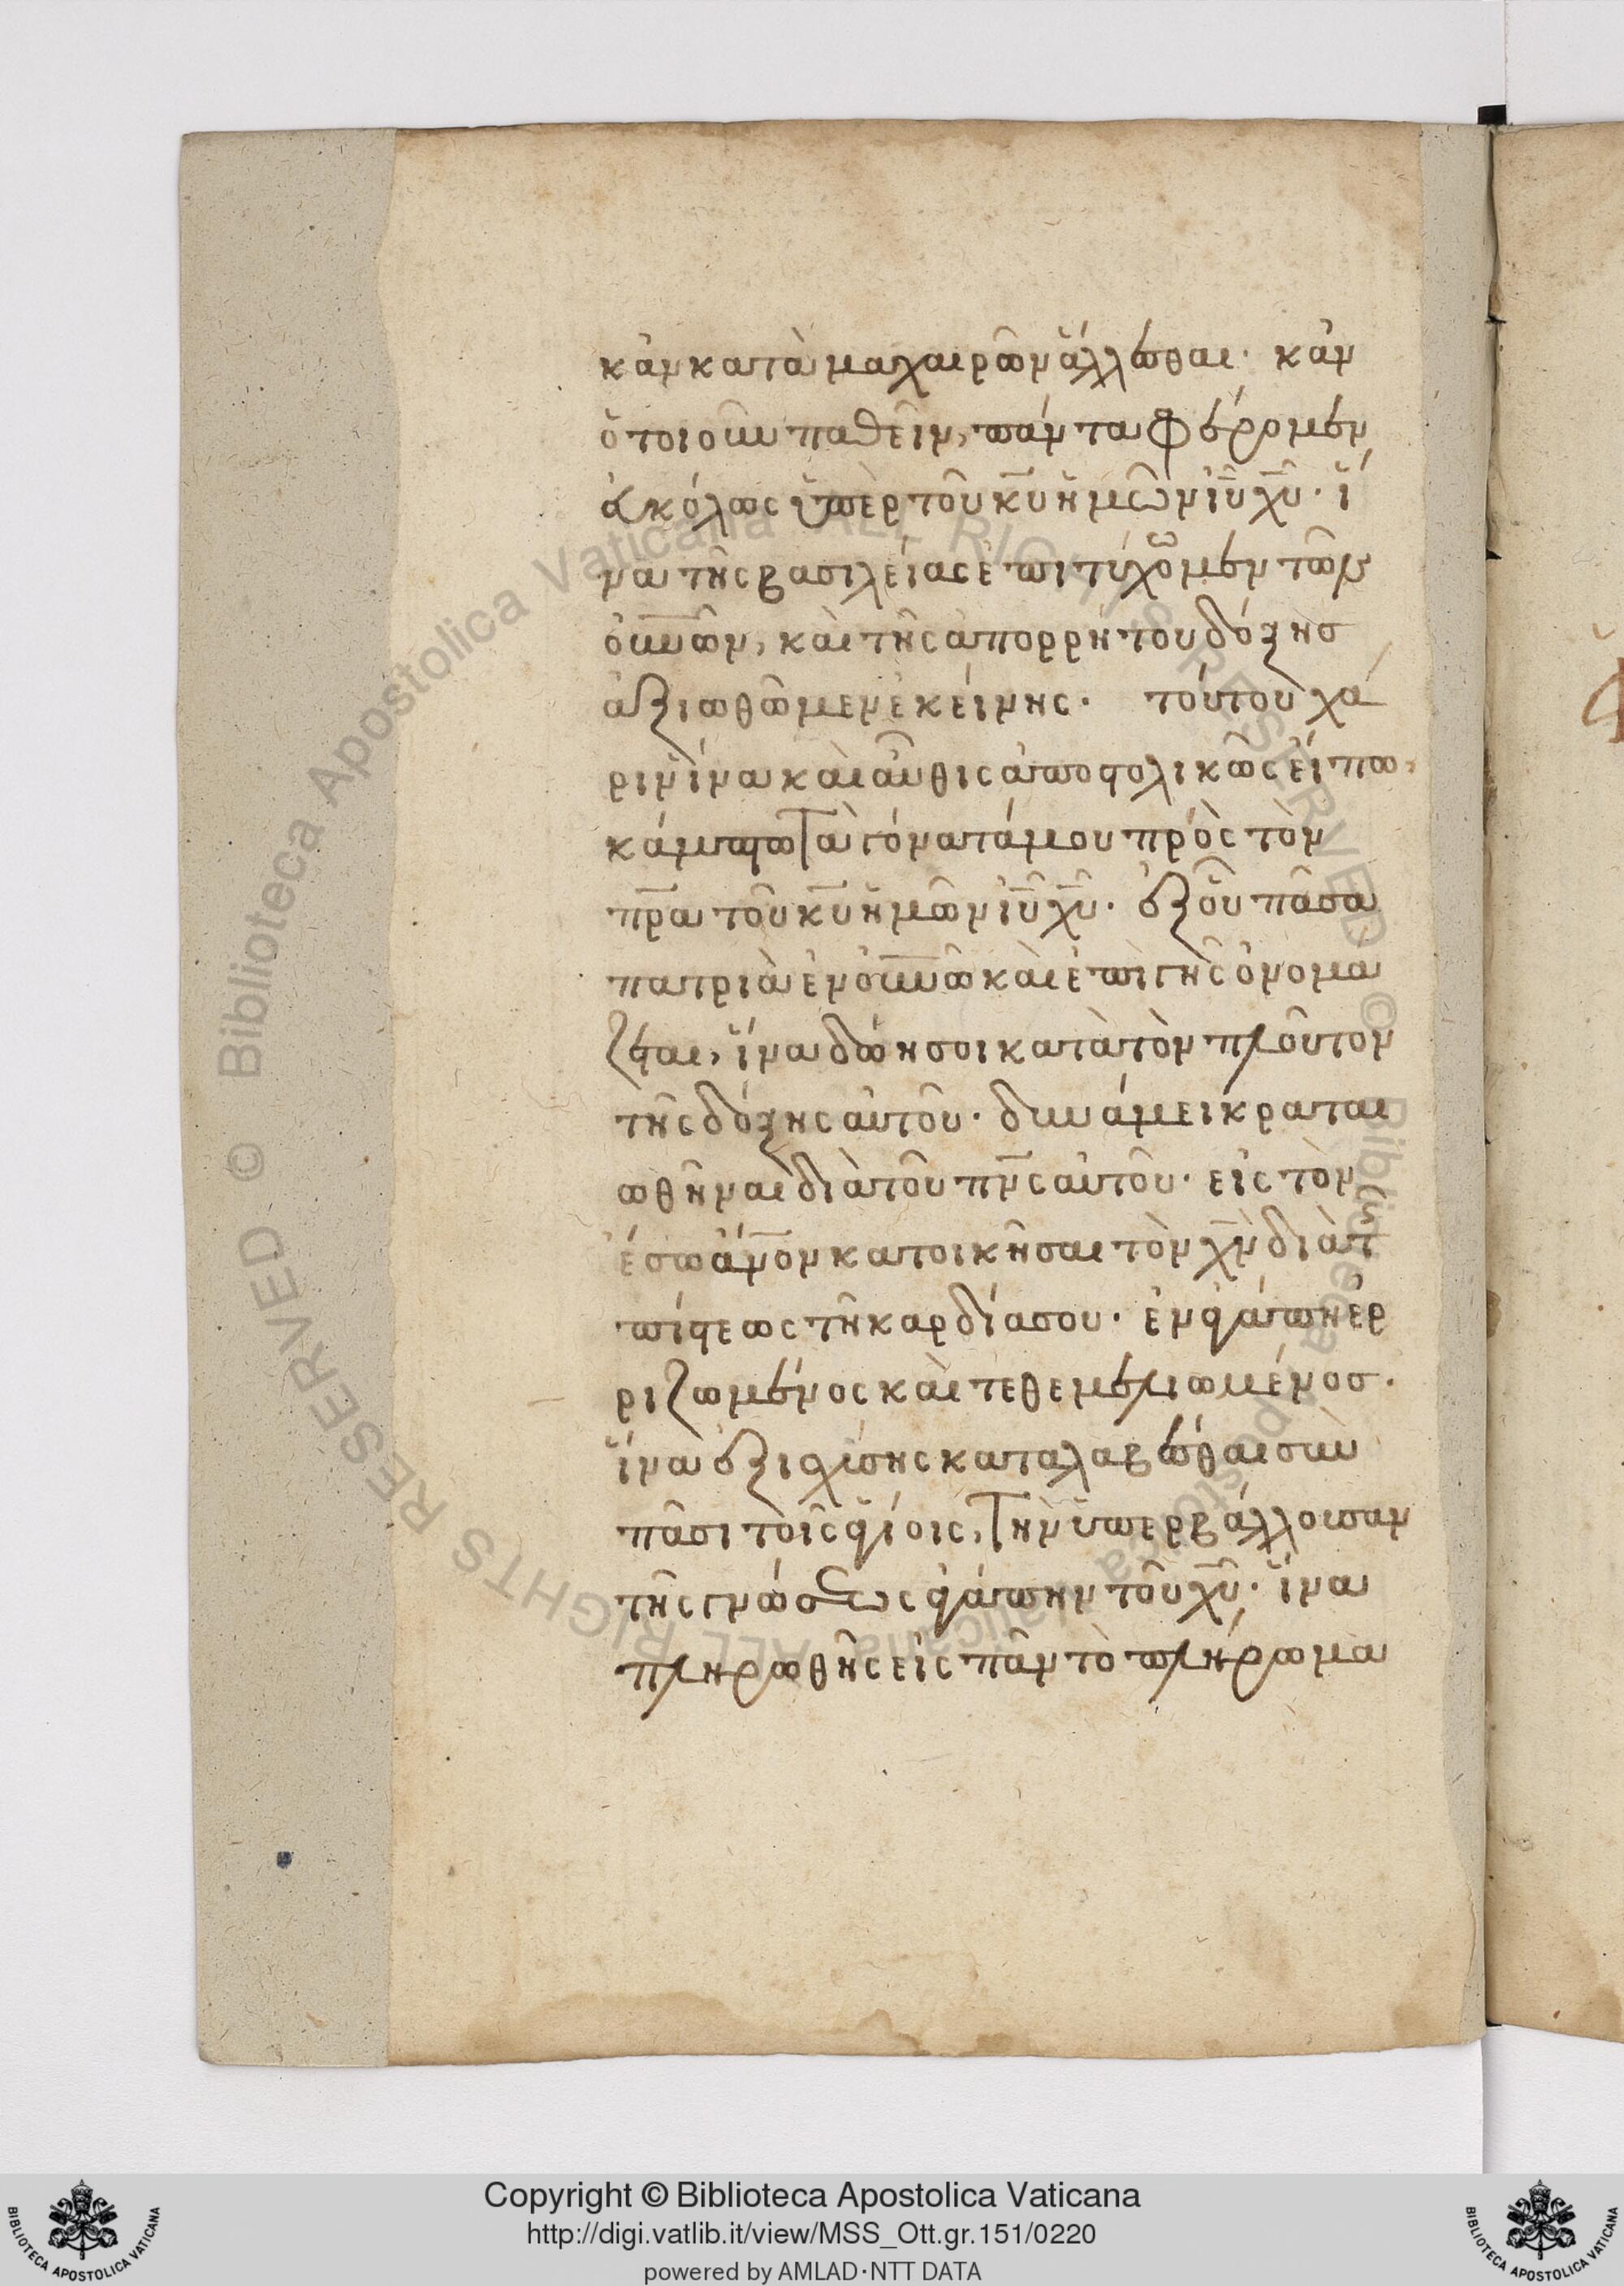 κἂν κατὰ μαχαιρῶν ἄλλεσθαι· κἂν
ὁτιοῦν παθεῖν, πάντα φέρομεν
εὐκόλως ὑπὲρ τοῦ κ̅υ̅ ἡμῶν ι̅υ̅ χ̅υ̅· ἵ
να τῆς βασιλείας ἐπιτύχωμεν τῶν
ο̅υ̅ν̅ῶν, καὶ τῆς ἀπορρήτου δόξης
ἀξιωθῶμεν ἐκείνης· τούτου χά
ριν ἵνα καὶ αὖθις ἀποστολικῶς εἴπω,
κάμπτω τὰ γόνατά μου πρὸς τὸν
π̅ρ̅α τοῦ κ̅υ̅ ἡμῶν ι̅υ̅ χ̅υ̅· ἐξ οὗ πᾶσα
πατριὰ ἐν ο̅υ̅ν̅ῶ καὶ ἐπὶ γῆς ὀνομά
ζεται, ἵνα δώη σοι κατὰ τὸν πλοῦτον
τῆς δόξης αὐτοῦ· δυνάμει κραται
ωθῆναι διὰ τοῦ π̅ν̅ς αὐτοῦ· εἰς τὸν
ἔσω ἄ̅ν̅ον κατοικῆσαι τὸν χ̅ν̅ διὰ τ
πίστεως τῆ καρδία σου· ἐν ἀγάπη ἐρ
ριζωμένος καὶ τεθεμελιωμένος·
ἵνα ἐξισχύσης καταλαβέσθαι σὺν
πᾶσι τοῖς ἁγίοις, τὴν ὑπερβάλλουσαν
τῆς γνώσεως ἀγάπην τοῦ χ̅υ̅· ἵνα
πληρωθῆς εἰς πᾶν τὸ πλήρωμα
Copyright © Biblioteca Apostolica Vaticana
http://digi.vatlib.it/view/MSS_Ott.gr.151/0220
powered by AMLAD·NTT DATA
BIBLIOTECA APOSTOLICA VATICANA
BIBLIOTECA APOSTOLICA VATICANA
© Biblioteca Apostolica Vaticana ALL RIGHTS RESERVED
© Biblioteca Apostolica Vaticana ALL RIGHTS RESERVED